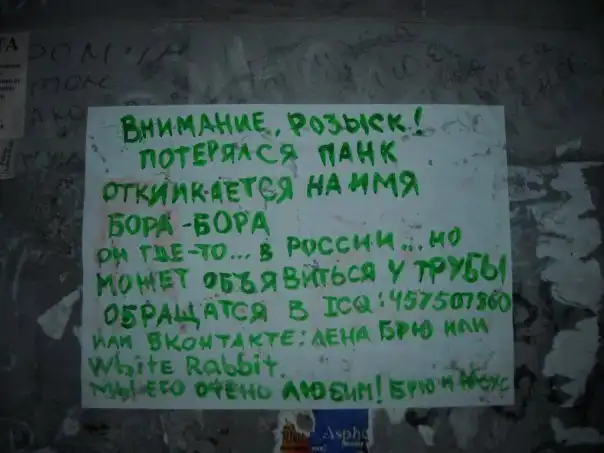 ВНИМАНИЕ, РОЗЫСК!
ПОТЕРЯЛСЯ ПАНК
ОТКЙИКАЕТСЯ НА ИМЯ
БОРА-БОРА
ОН ГДЕ-ТО... В РОССИИ... НО
МОЖЕТ ОБЪЯВИТЬСЯ У ТРУБЫ
ОБРАЩАТСЯ В ICQ: 457507860
ИЛИ ВКОНТАКТЕ: ЛЕНА БРЮ ИЛИ
White Rabbit.
МЫ ЕГО ОЧЕНЬ ЛЮБИМ! БРЮ И
Aspho